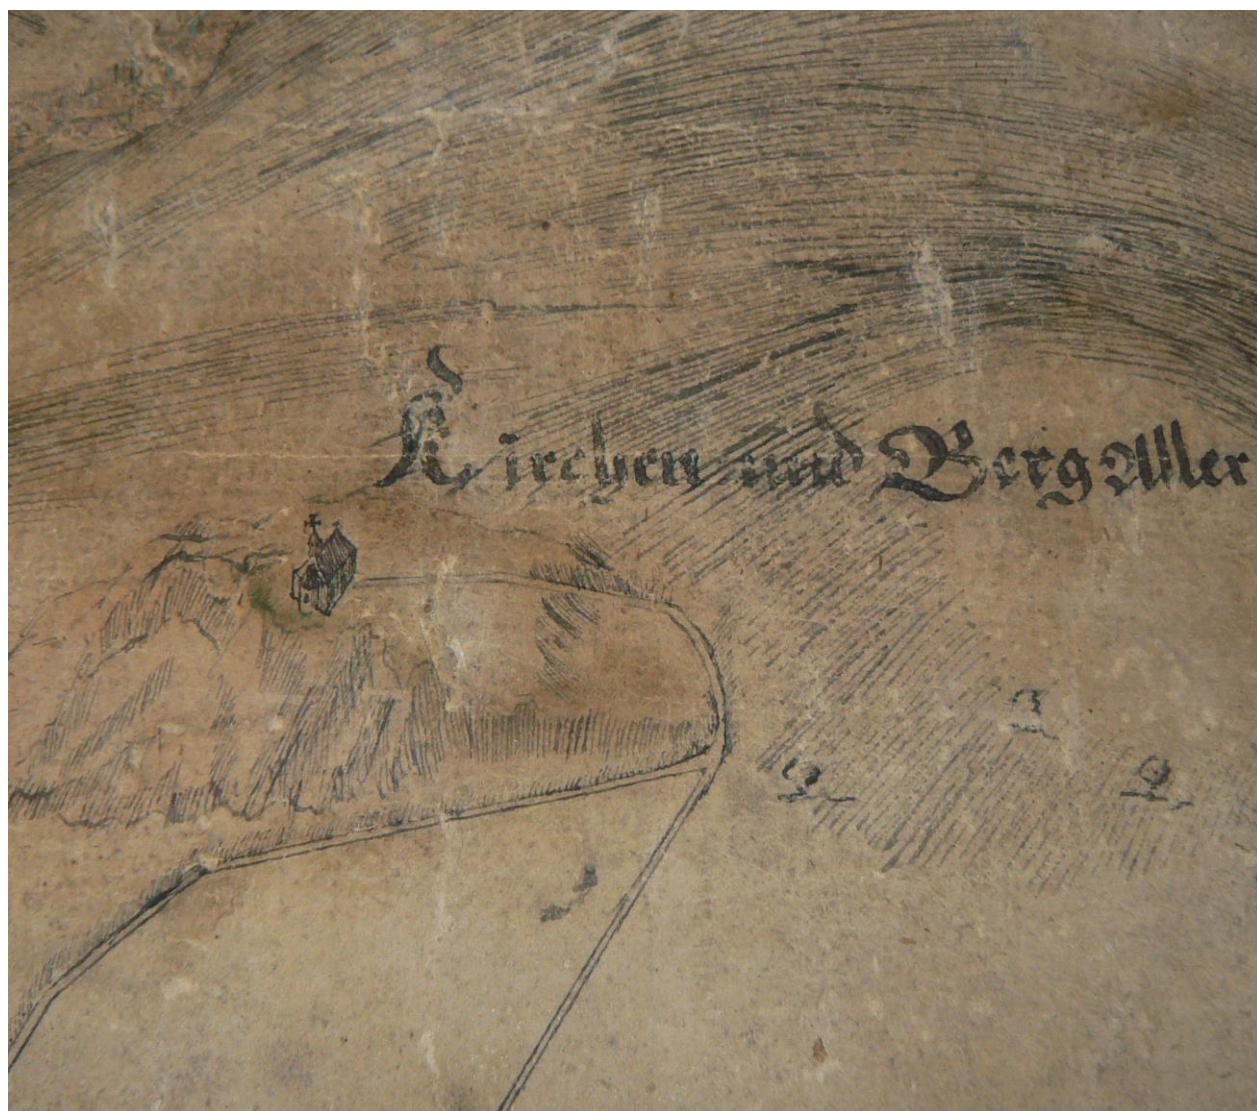 Kirchen und Berg Aller